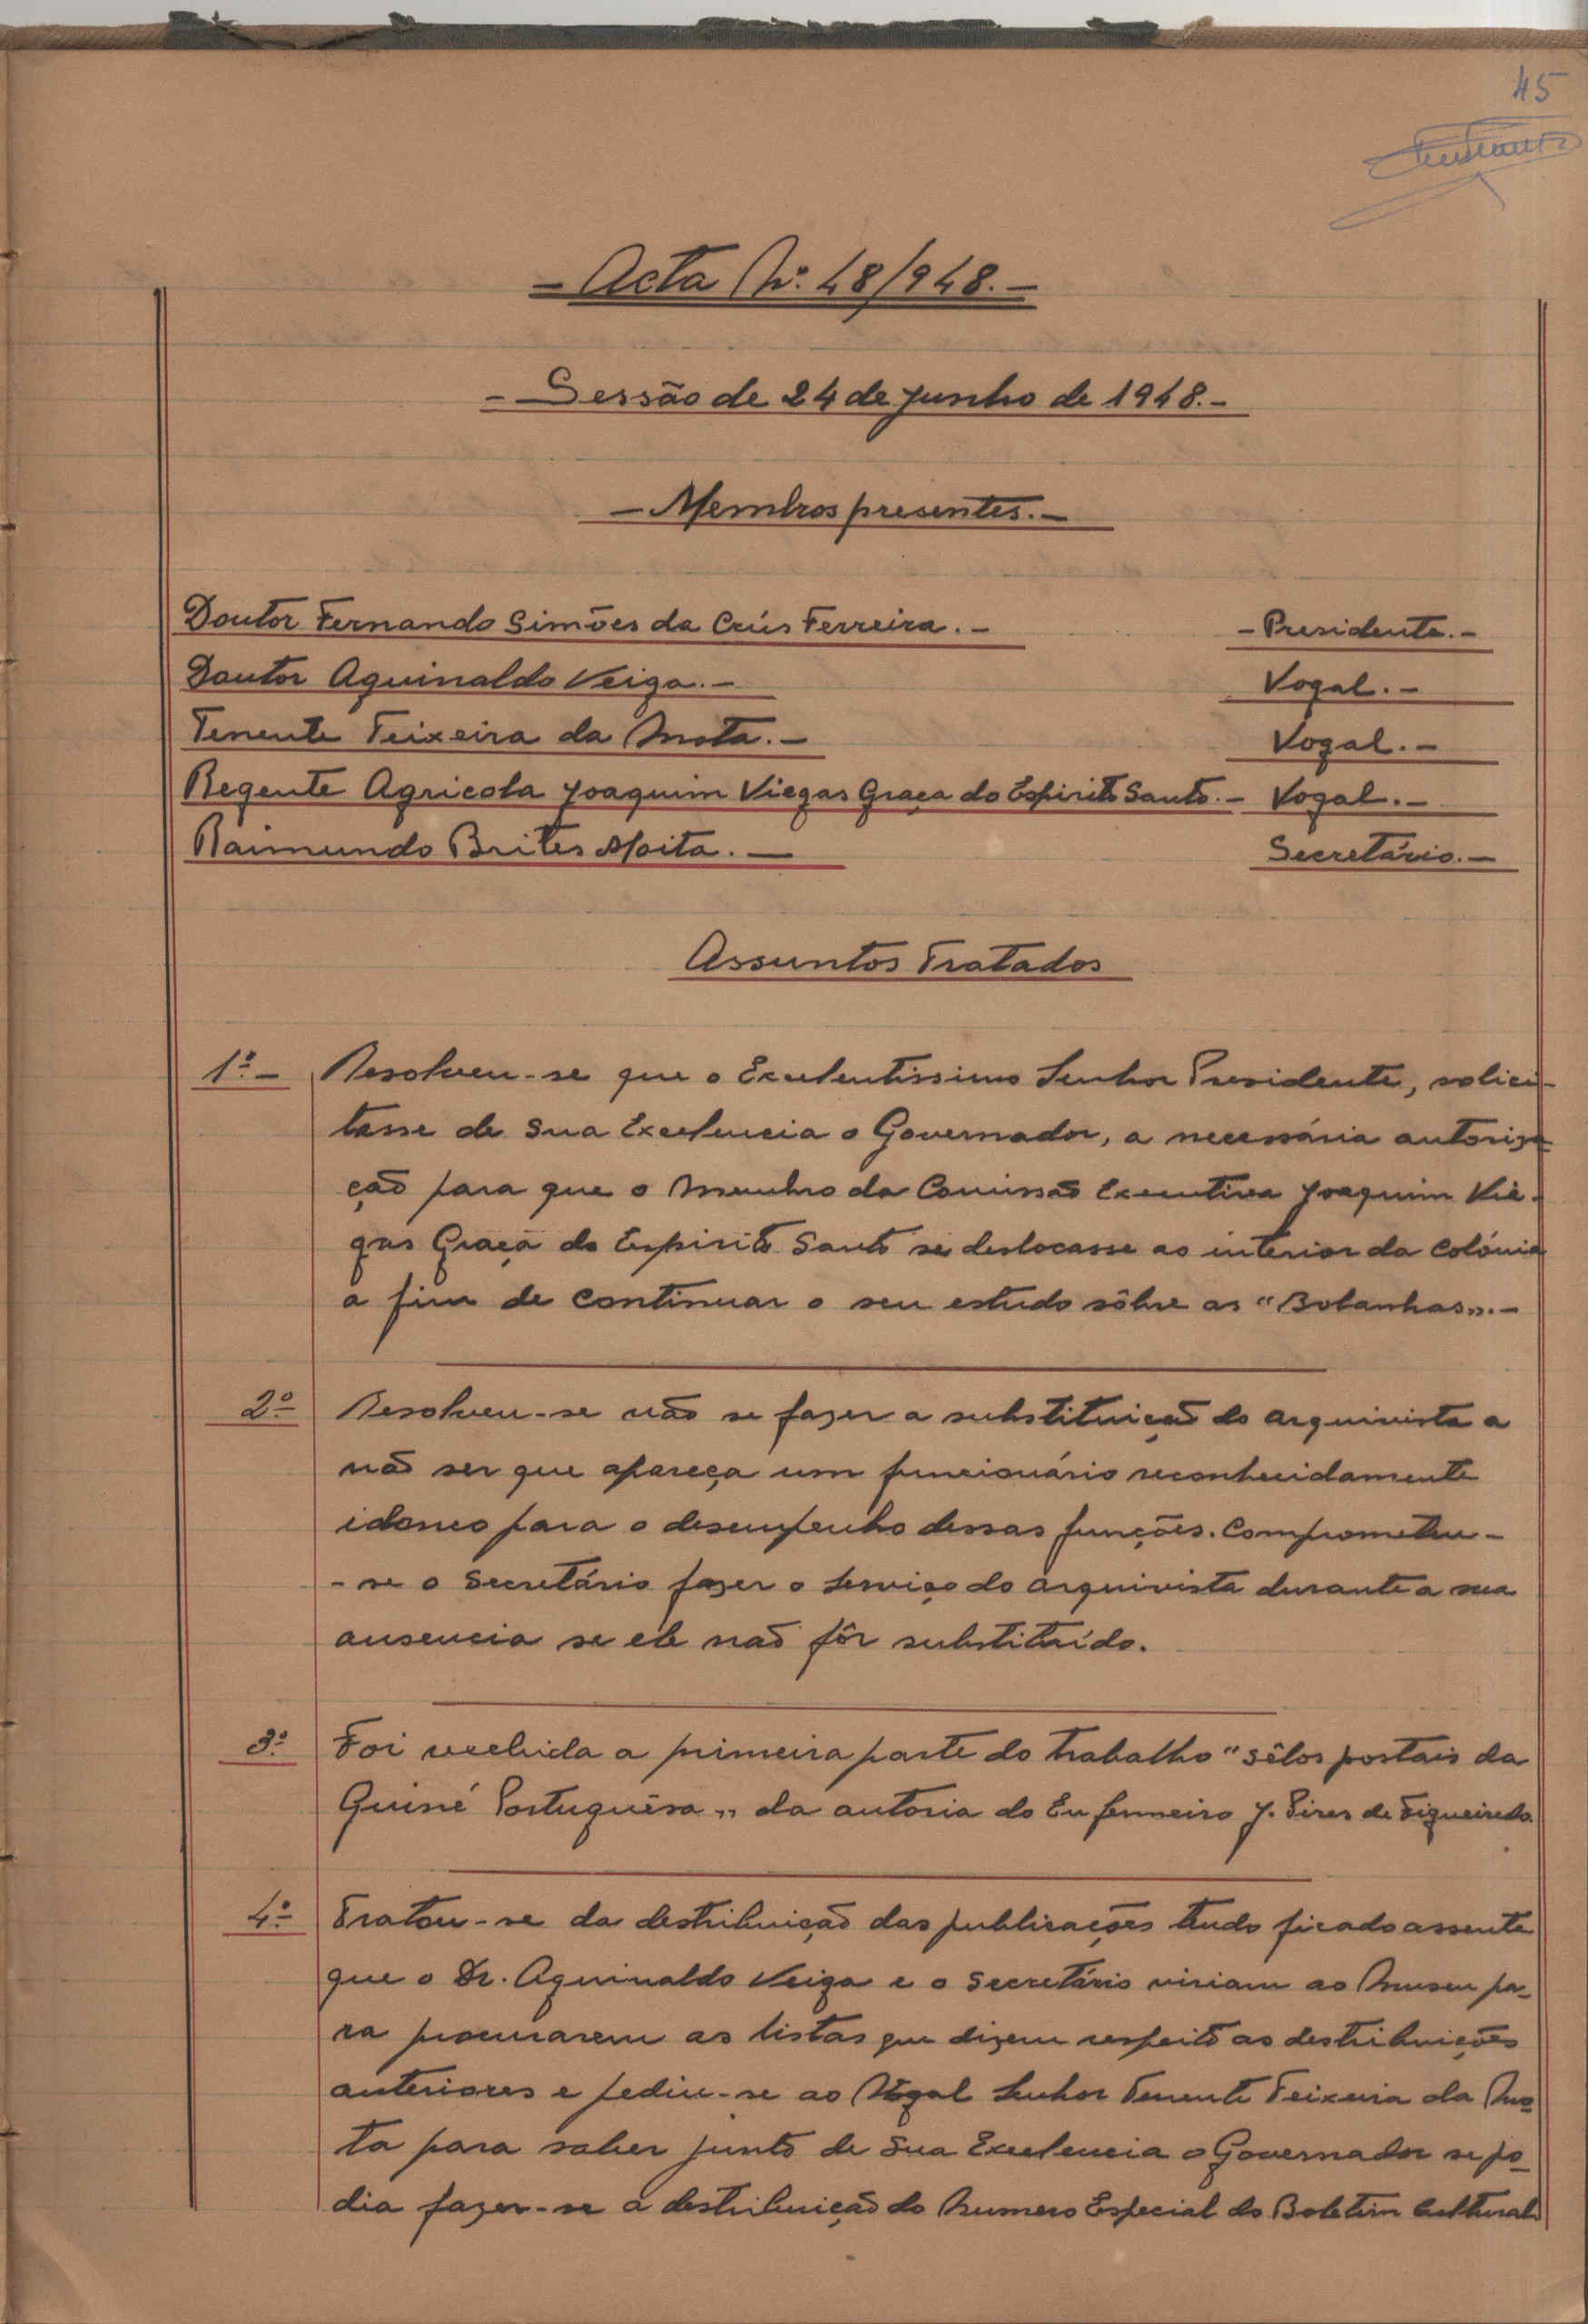 45
- Acta Nº. 48/948. -
- Sessão de 24 de Junho de 1948. -
- Membros presentes. -
Doutor Fernando Simões da Crús Ferreira. - - Presidente. -
Doutor Aguinaldo Veiga. - Vogal. -
Tenente Teixeira da Mota. - Vogal. -
Regente Agricola Joaquim Viegas Graça do Espirito Santo. - Vogal. -
Raimundo Brites Moita. - Secretário. -
Assuntos Tratados
1º - Resolveu-se que o Excelentissimo Senhor Presidente, solici-
tasse de Sua Excelencia o Governador, a necessária autoriza-
ção para que o Membro da Comissão Executiva Joaquim Vie-
gas Graça do Espirito Santo se deslocasse ao interior da Colónia
a fim de continuar o seu estudo sôbre as "Bolanhas". -
2º Resolveu-se não se fazer a substituição do arquivista a
não ser que apareça um funcionário reconhecidamente
idoneo para o desempenho dessas funções. Comprometeu-
-se o Secretário fazer o serviço do arquivista durante a sua
ausencia se ele não fôr substituído.
3º Foi recebida a primeira parte do trabalho "Sêlos postais da
Guiné Portuguêsa" da autoria do Enfermeiro J. Pires de Figueiredo.
4º Tratou-se da destribuição das publicações tendo ficado assente
que o Dr. Aguinaldo Veiga e o Secretário viriam ao Museu pa-
ra procurarem as listas que dizem respeito as destribuições
anteriores e pediu-se ao Vogal Senhor Tenente Teixeira da Mo-
ta para saber junto de Sua Excelencia o Governador se po-
dia fazer-se a destribuição do Numero Especial do Boletim Cultural